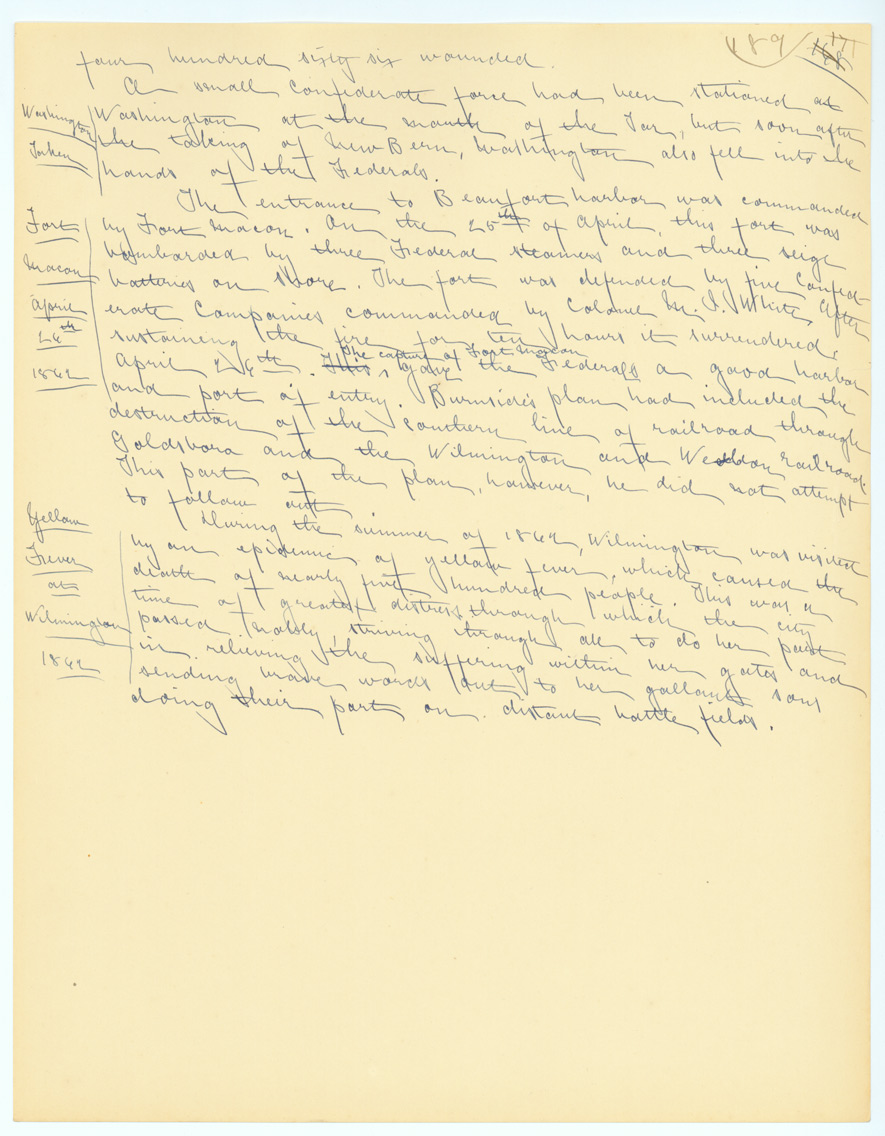 189 171
four hundred sixty six wounded.
A small Confederate force had been stationed at
Washington Taken
Washington at the mouth of the Tar, but soon after
the taking of New Bern, Washington also fell into the
hands of the Federals.
The entrance to Beaufort harbor was commanded
Fort Macon April 26th 1862
by Fort Macon. On the 25th of April, this fort was
bombarded by three Federal steamers and three seige
batteries on shore. The fort was defended by five Confed-
erate Companies commanded by Colonel M. J. White. After
sustaining the fire for ten hours it surrendered,
The capture of Fort Macon
April 26th. This gave the Federals a good harbor
and port of entry. Burnside's plan had included the
destruction of the southern line of railroad through
Goldsboro and the Wilmington and Weldon railroad.
This part of the plan, however, he did not attempt
to follow out
Yellow Fever at Wilmington 1862
During the summer of 1862, Wilmington was visited
by an epidemic of yellow fever, which caused the
death of nearly five hundred people. This was a
time of greatest distress through which the city
passed nobly, striving through all to do her part
in relieving the suffering within her gates and
sending brave words out to her gallant sons
doing their part on distant battle fields.